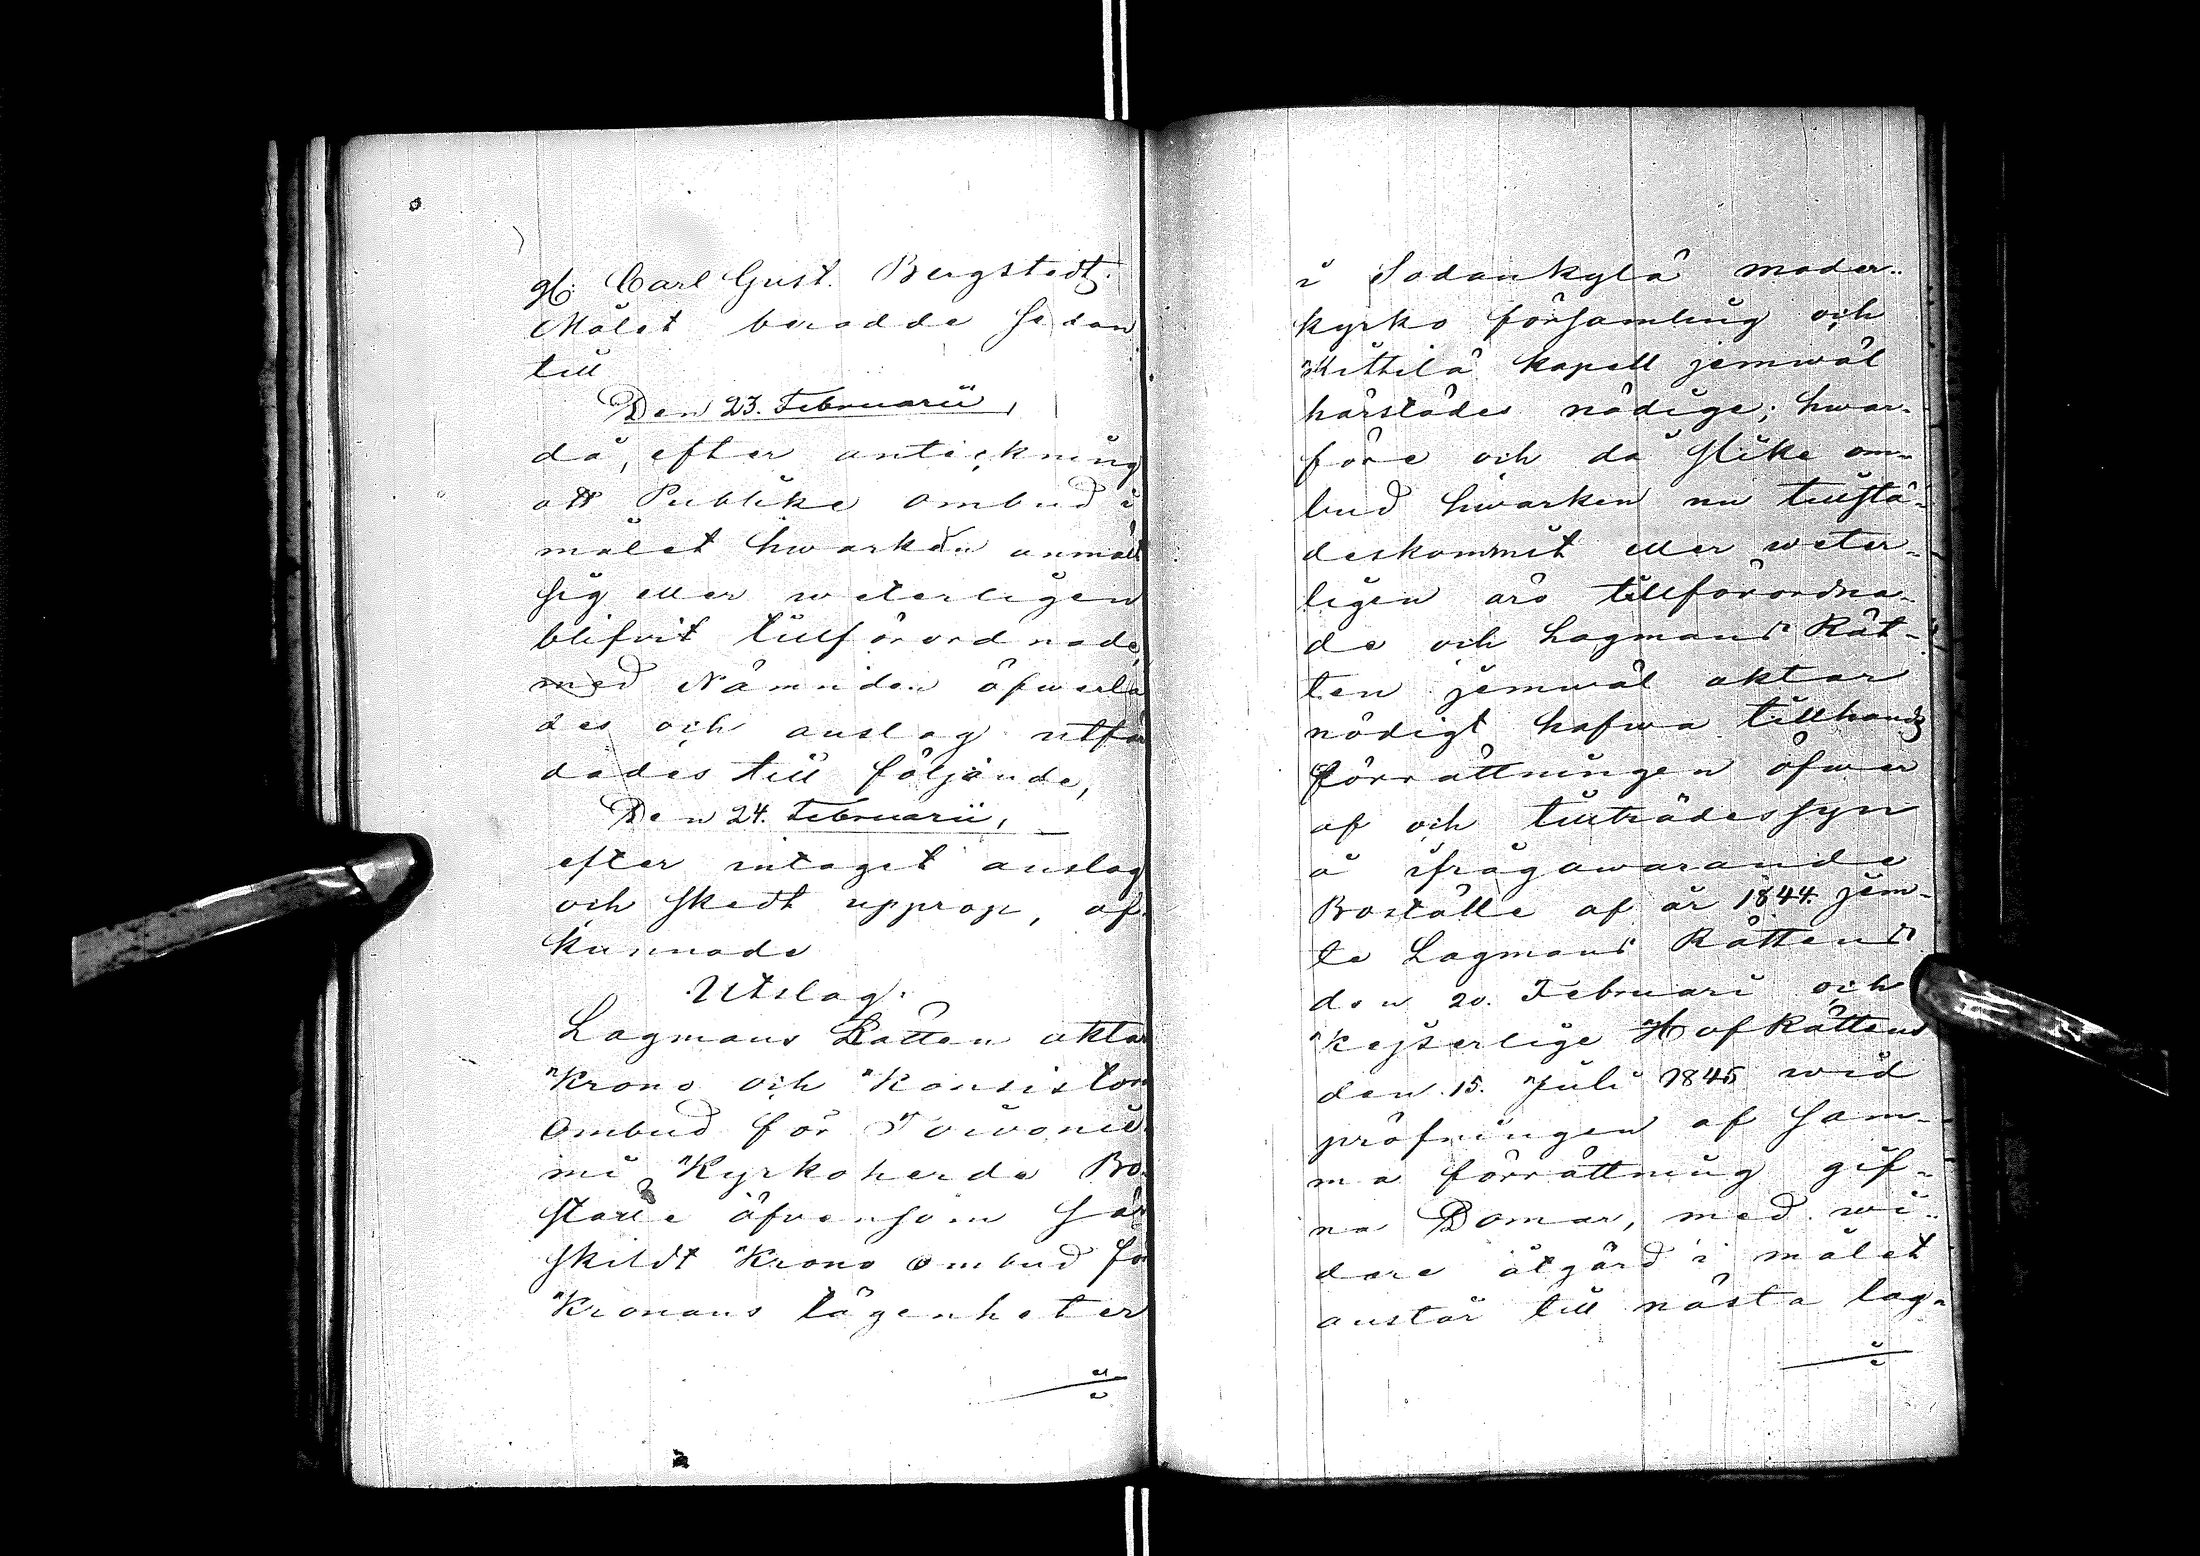 Carl Gust. Bergstedt.
Målet berodde sedan
till
Den 23. Februarii,
då, efter anteckning
att Publike ombud i
målet hwarken anmält
sig eller weterligen
blifvit tillförordnade,
med Nämnden öfwerla
des och anslag utfär
dades till följande,
Den 24. Februarii,
efter intaget anslag
och skedt upprop, af-
kunnade
Utslag.
Lagmans Rätten aktar
Krono och Konsistor
Ombud för Toivonie
mi Kyrkoherde Bo-
ställe äfvensom sär
skildt Krono ombud för
Kronans lägenheter
i Sodankylä moder-
kyrko församling och
Kittilä kapell jemwäl
härstädes nödige; hwar-
före och då slike om-
bud hwarken nu tillstä-
deskommit eller weter-
ligen äro tillförordna-
de och Lagmans Rät-
ten jemwäl aktar
nödigt hafwa tillhands
förrättningen öfwer
af och tillträdessyn
å ifrågawarande
Boställe af år 1844. jem-
te Lagmans Rättens
den 20. Februari och
Kejserlige HofRättens
den 15. Juli 1845 wid
pröfningen af sam-
ma förrättning gif-
na Domar, med wi-
dare åtgärd i målet
anstår till nästa lag-